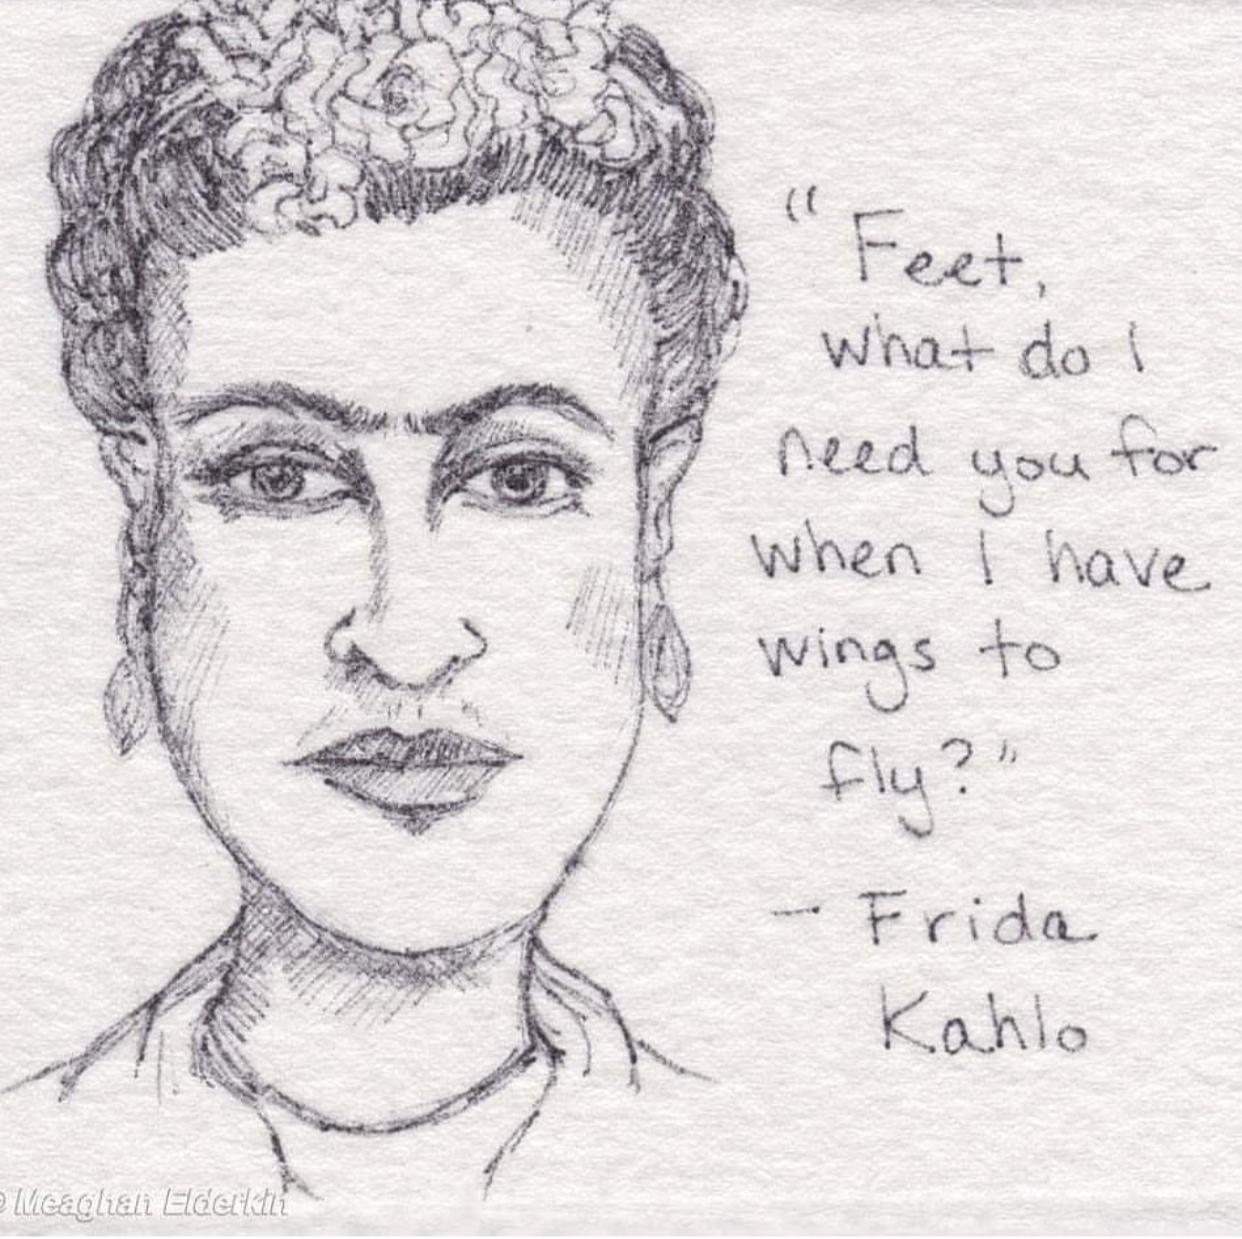 “Feet,
what do I
need you for
when I have
wings to
fly?”
- Frida
Kahlo
© Meaghan Elderkin